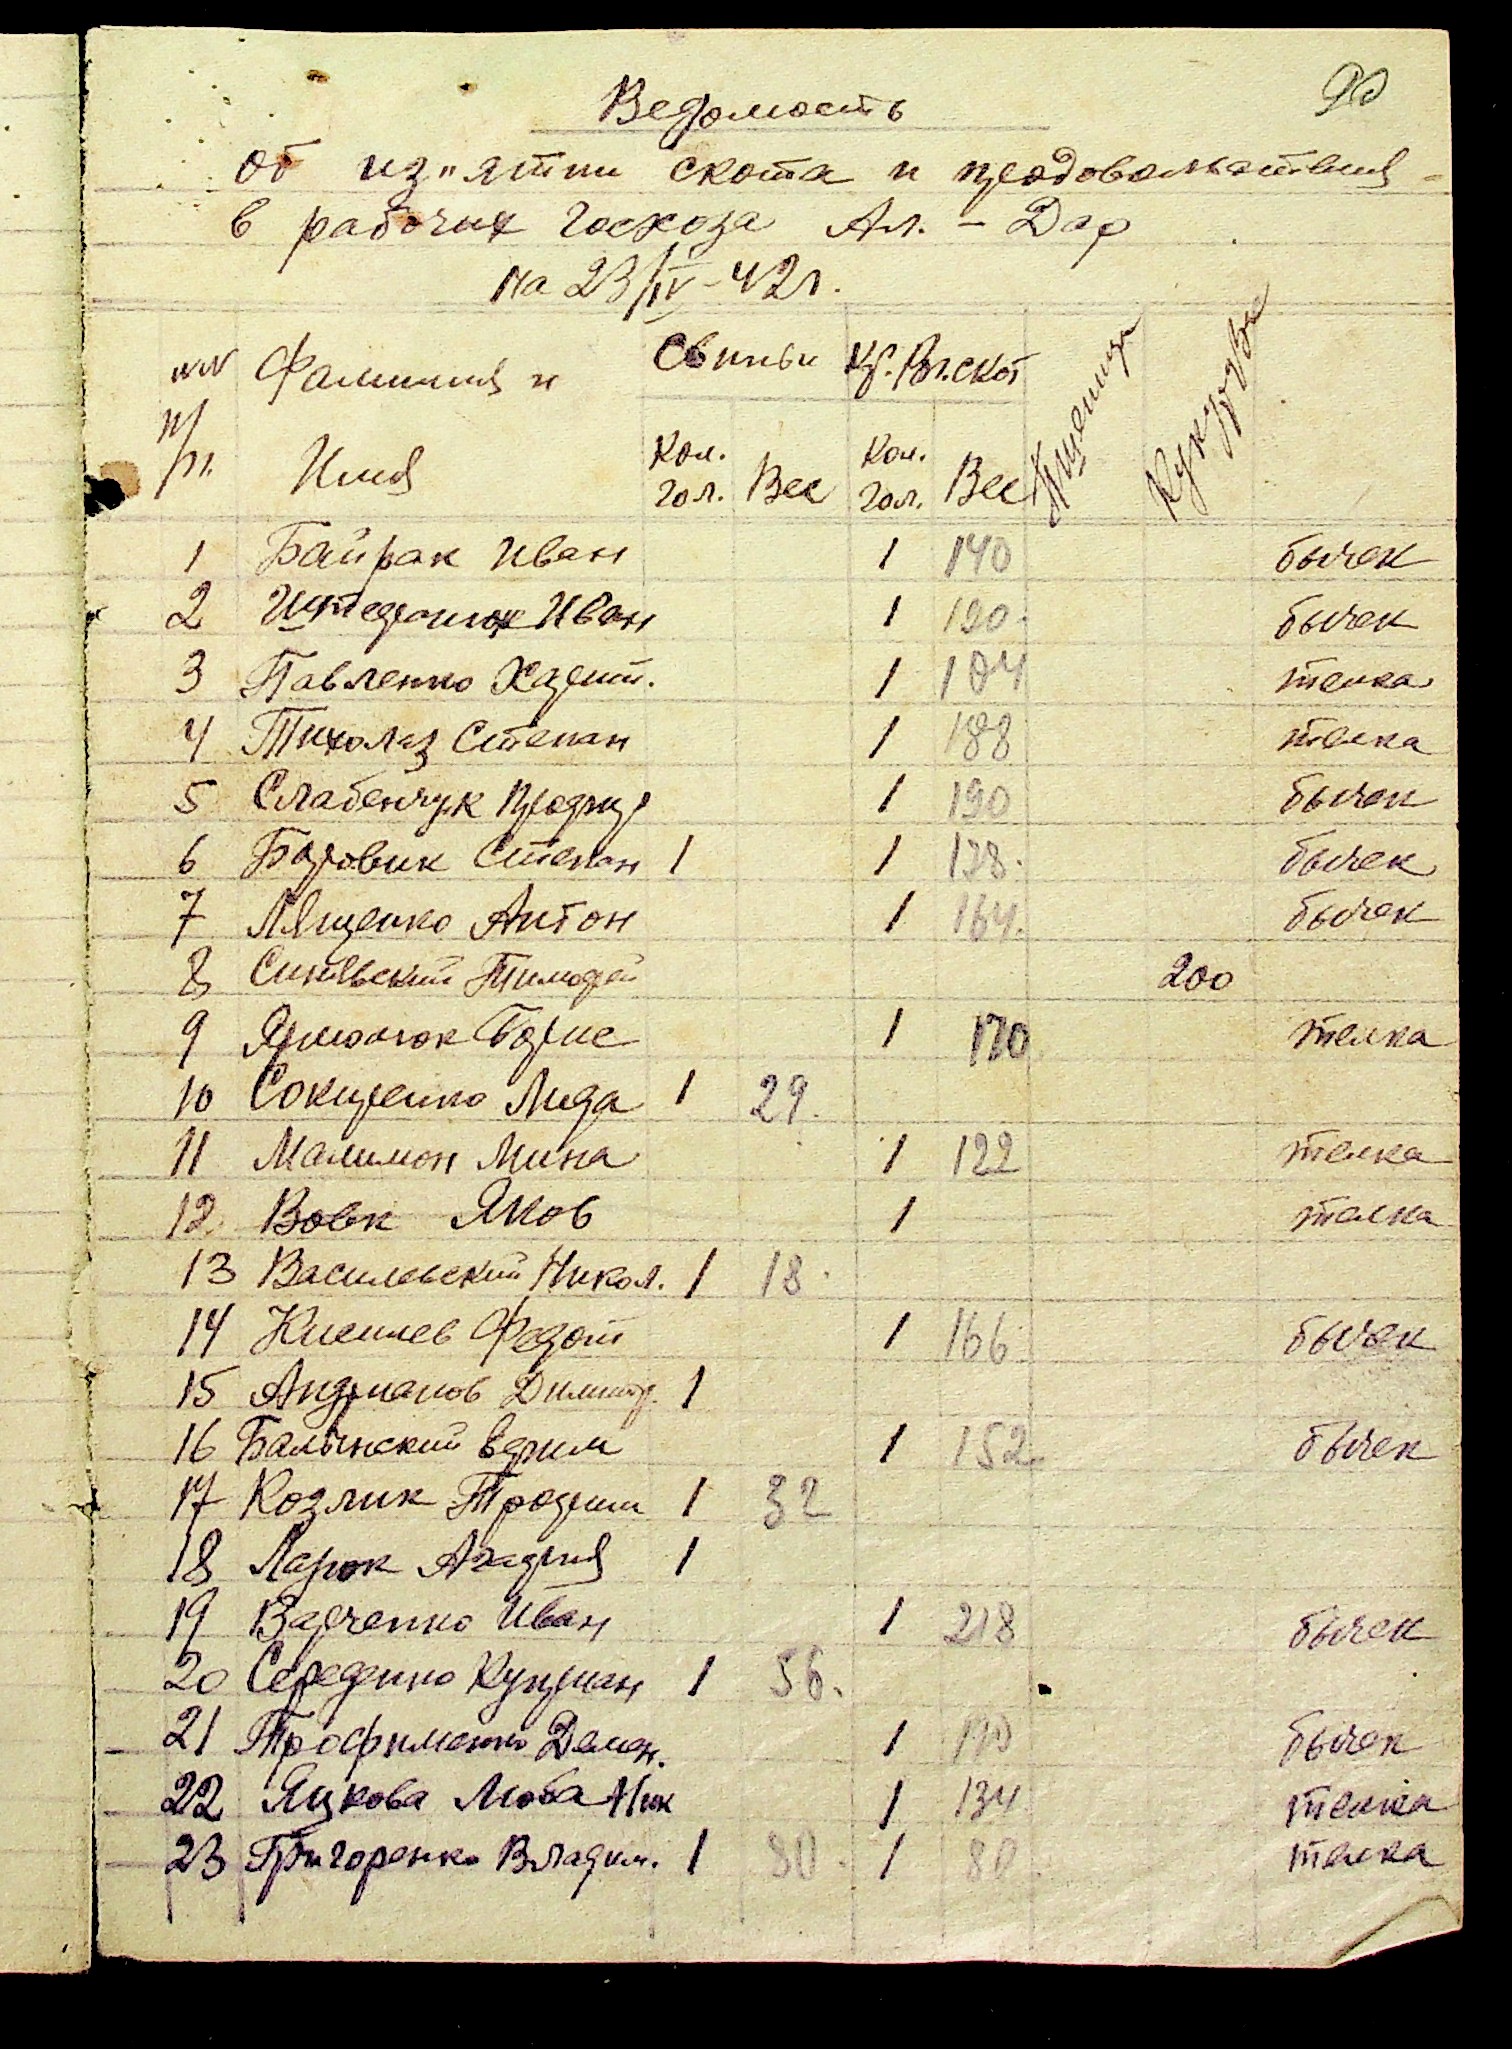 90
Ведомость
об из"ятии скота и продовольствия
в рабочих госхоза Ал. - Дар
на 23/IV - 42 г.
№№ п/п. Фамилия и Имя Свиньи Кр. Рог. скот Пшеница Кукуруза
Кол. гол. Вес Кол. гол. Вес
1 Байрак Иван 1 140 бычек
2 Иван 1 190 бычек
3 Павленко 1 104 телка
4 Тихолаз Степан 1 188 телка
5 Слабенчук 1 190 бычек
6 Боровик Степан 1 1 128 бычек
7 Лященко Антон 1 164 бычек
8 Тимофей 200
9 Ярмолюк Борис 1 170 телка
10 Сокиренко Лида 1 29
11 Малимон Мина 1 122 телка
12 Вовк Яков 1 телка
13 Василевский Никол. 1 18
14 Киселев Федот 1 166 бычек
15 Андрианов Димитр. 1
16 Балинский 1 152 бычек
17 Козлик Трофим 1 32
18 1
19 Иван 1 218 бычек
20 Середенко Куприан 1 56
21 Трофименко Демен. 1 190 бычек
22 Яцкова Люба Ник 1 134 телка
23 Григоренко Владим. 1 30 1 80 телка